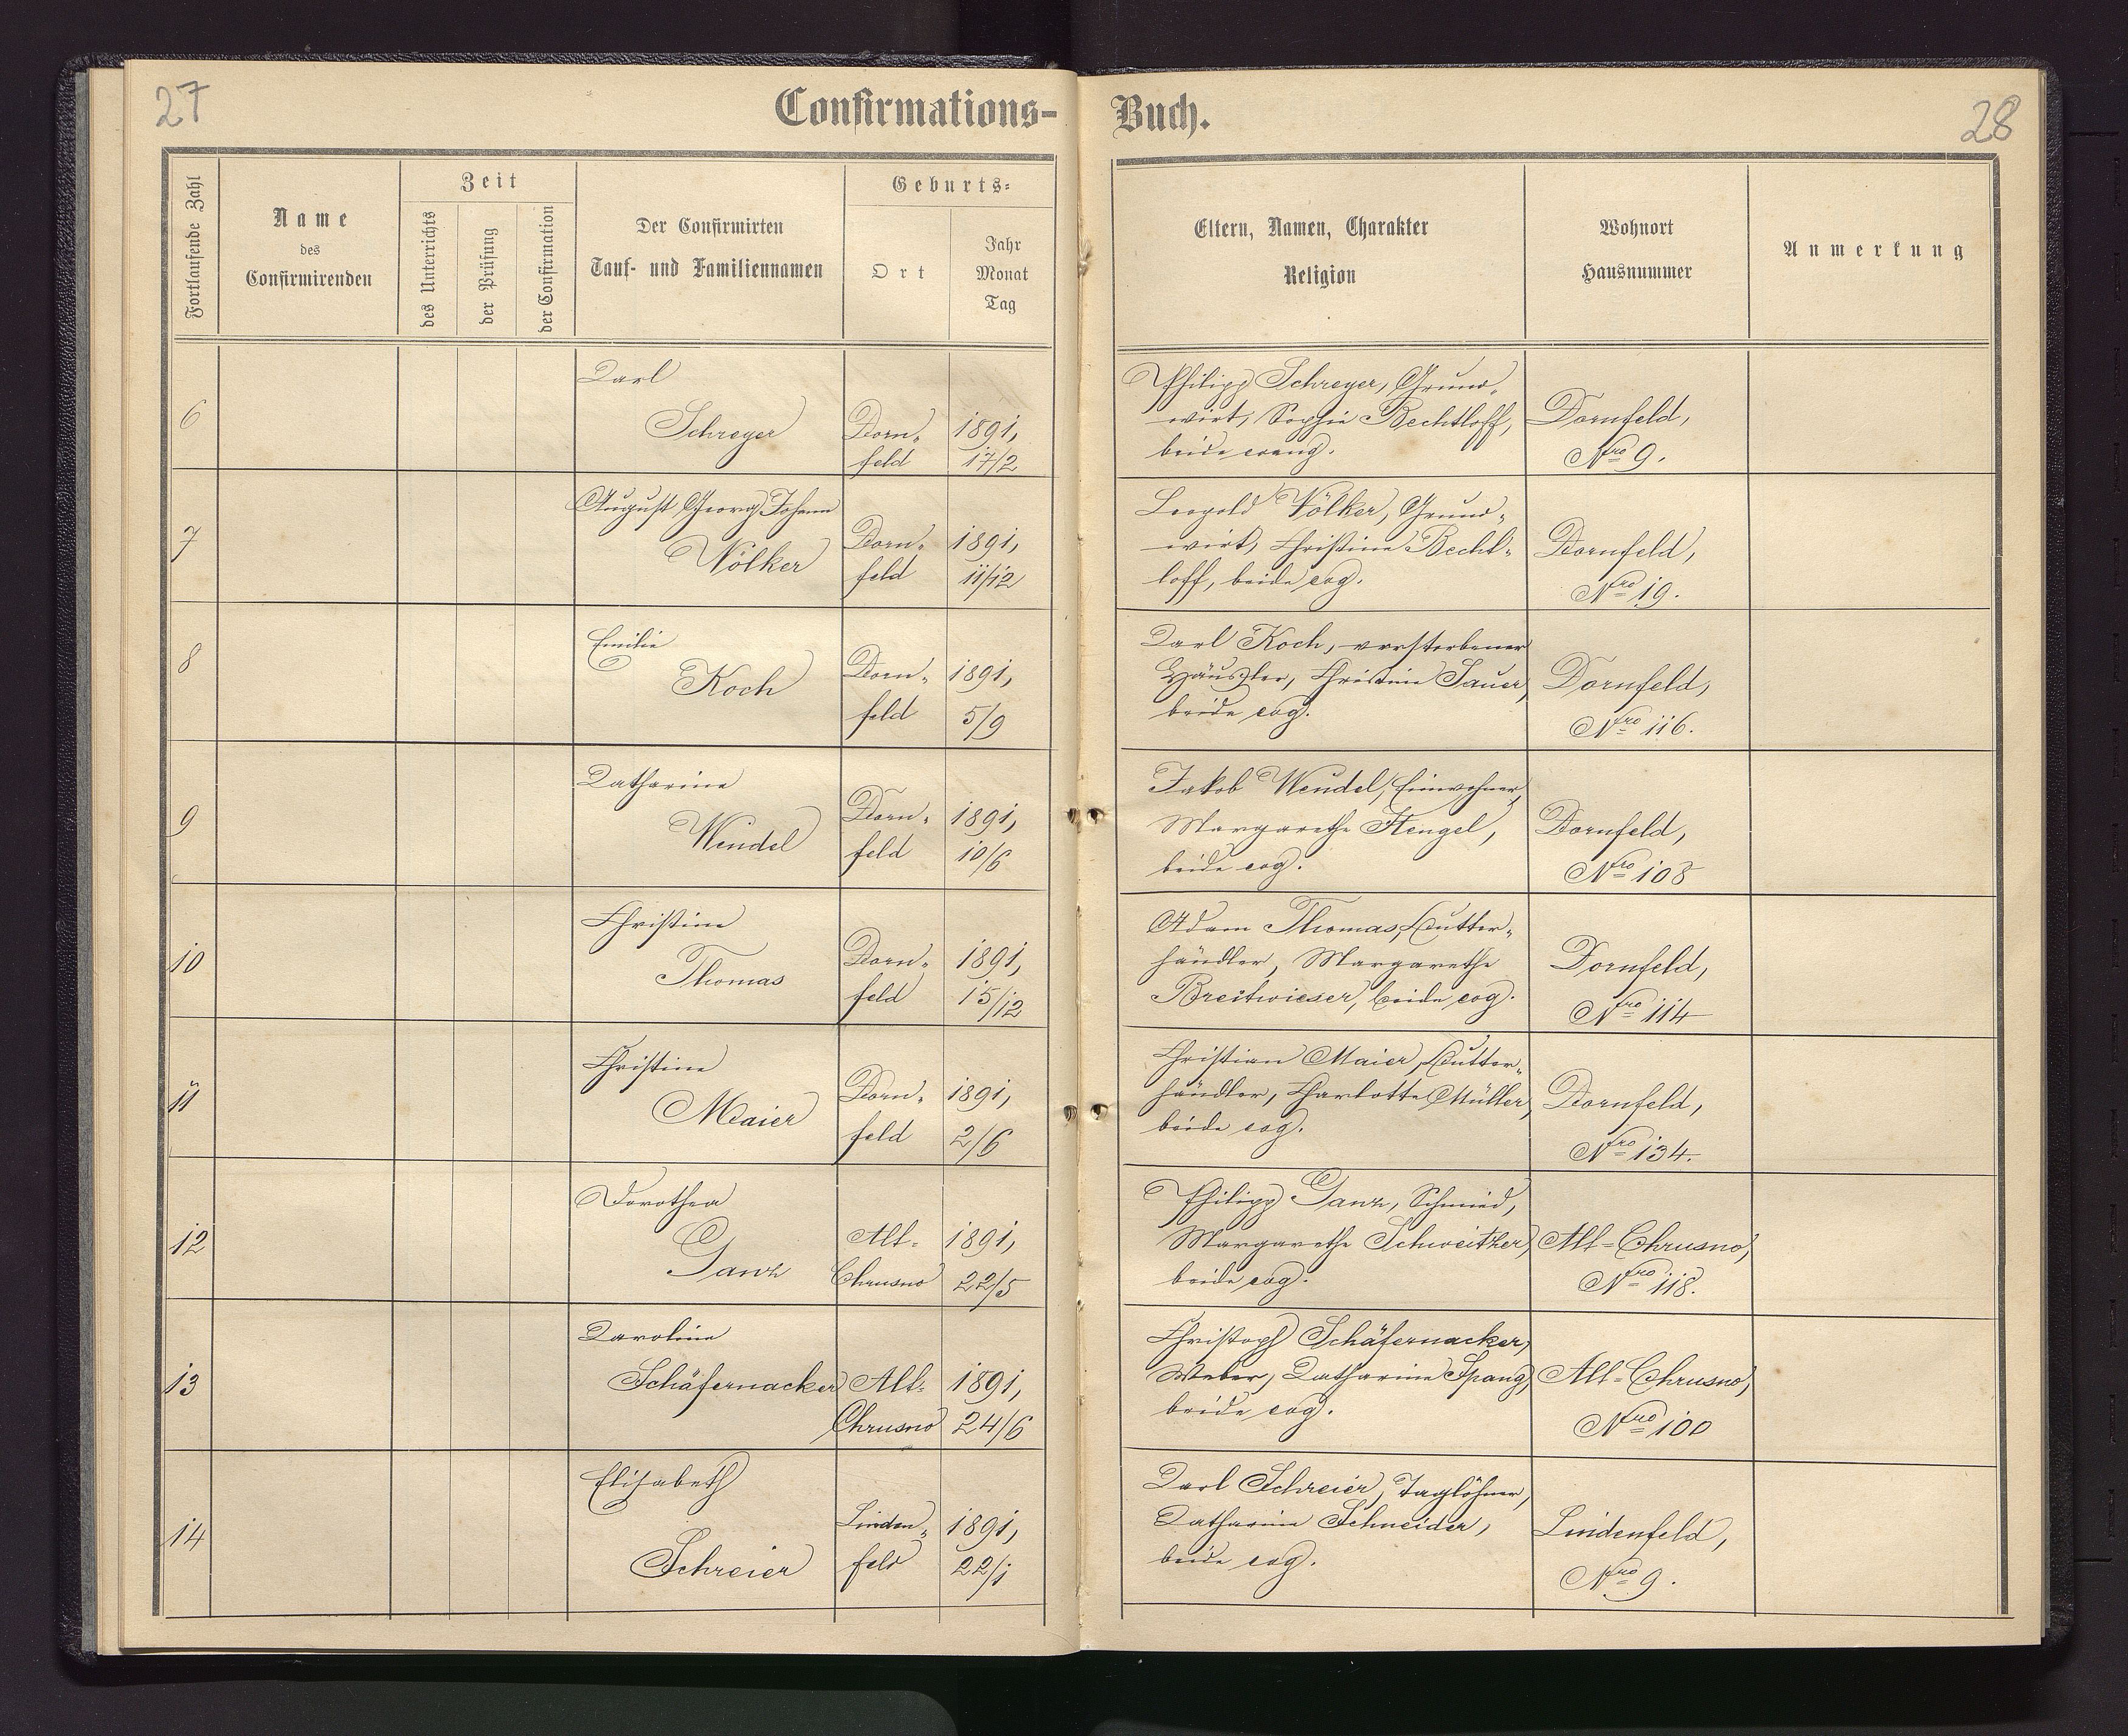 27
Confirmations-
Buch.
28
Fortlaufende Zahl
Name
des
Confirmirenden
Zeit
des Unterrichts
der Prüfung
der Confirmation
Der Confirmirten
Tauf- und Familiennamen
Geburts-
Ort
Jahr
Monat
Tag
Eltern, Namen, Charakter
Religion
Wohnort
Hausnummer
Anmerkung
6
Karl
Schreyer
Dorn-
feld
1891,
17/2
Philipp Schreyer, Grund-
wirt, Sophie Bechtloff,
beide evang.
Dornfeld,
Nro 9.
7
August Georg Johann
Völker
Dorn-
feld
1891,
11/12
Leopold Völker, Grund-
wirt, Christine Becht-
loff, beide evg.
Dornfeld,
Nro 19.
8
Emilie
Koch
Dorn-
feld
1891,
5/9
Karl Koch, verstorbener
Häusler, Christine Sauer,
beide evg.
Dornfeld,
Nro 116.
9
Katharina
Wendel
Dorn-
feld
1891,
10/6
Jakob Wendel, Einwohner,
Margarethe Stengel,
beide evg.
Dornfeld,
Nro 108
10
Christine
Thomas
Dorn-
feld
1891,
15/12
Adam Thomas, Butter-
händler, Margarethe
Breitwieser, beide evg.
Dornfeld,
Nro 114
11
Christine
Maier
Dorn-
feld
1891,
2/6
Christian Maier, Butter-
händler, Charlotte Müller,
beide evg.
Dornfeld,
Nro 134.
12
Dorothea
Ganz
Alt-
Chrusno
1891,
22/5
Philipp Ganz, Schmied,
Margarethe Schweitzer,
beide evg.
Alt-Chrusno,
Nro 118.
13
Karoline
Schäfernacker
Alt-
Chrusno
1891,
24/6
Christoph Schäfernacker,
Weber, Katharine Spang,
beide evg.
Alt-Chrusno,
Nro 100
14
Elisabeth
Schreier
Linden-
feld
1891,
22/1
Karl Schreier, Taglöhner,
Katharine Schneider,
beide evg.
Lindenfeld,
Nro 9.